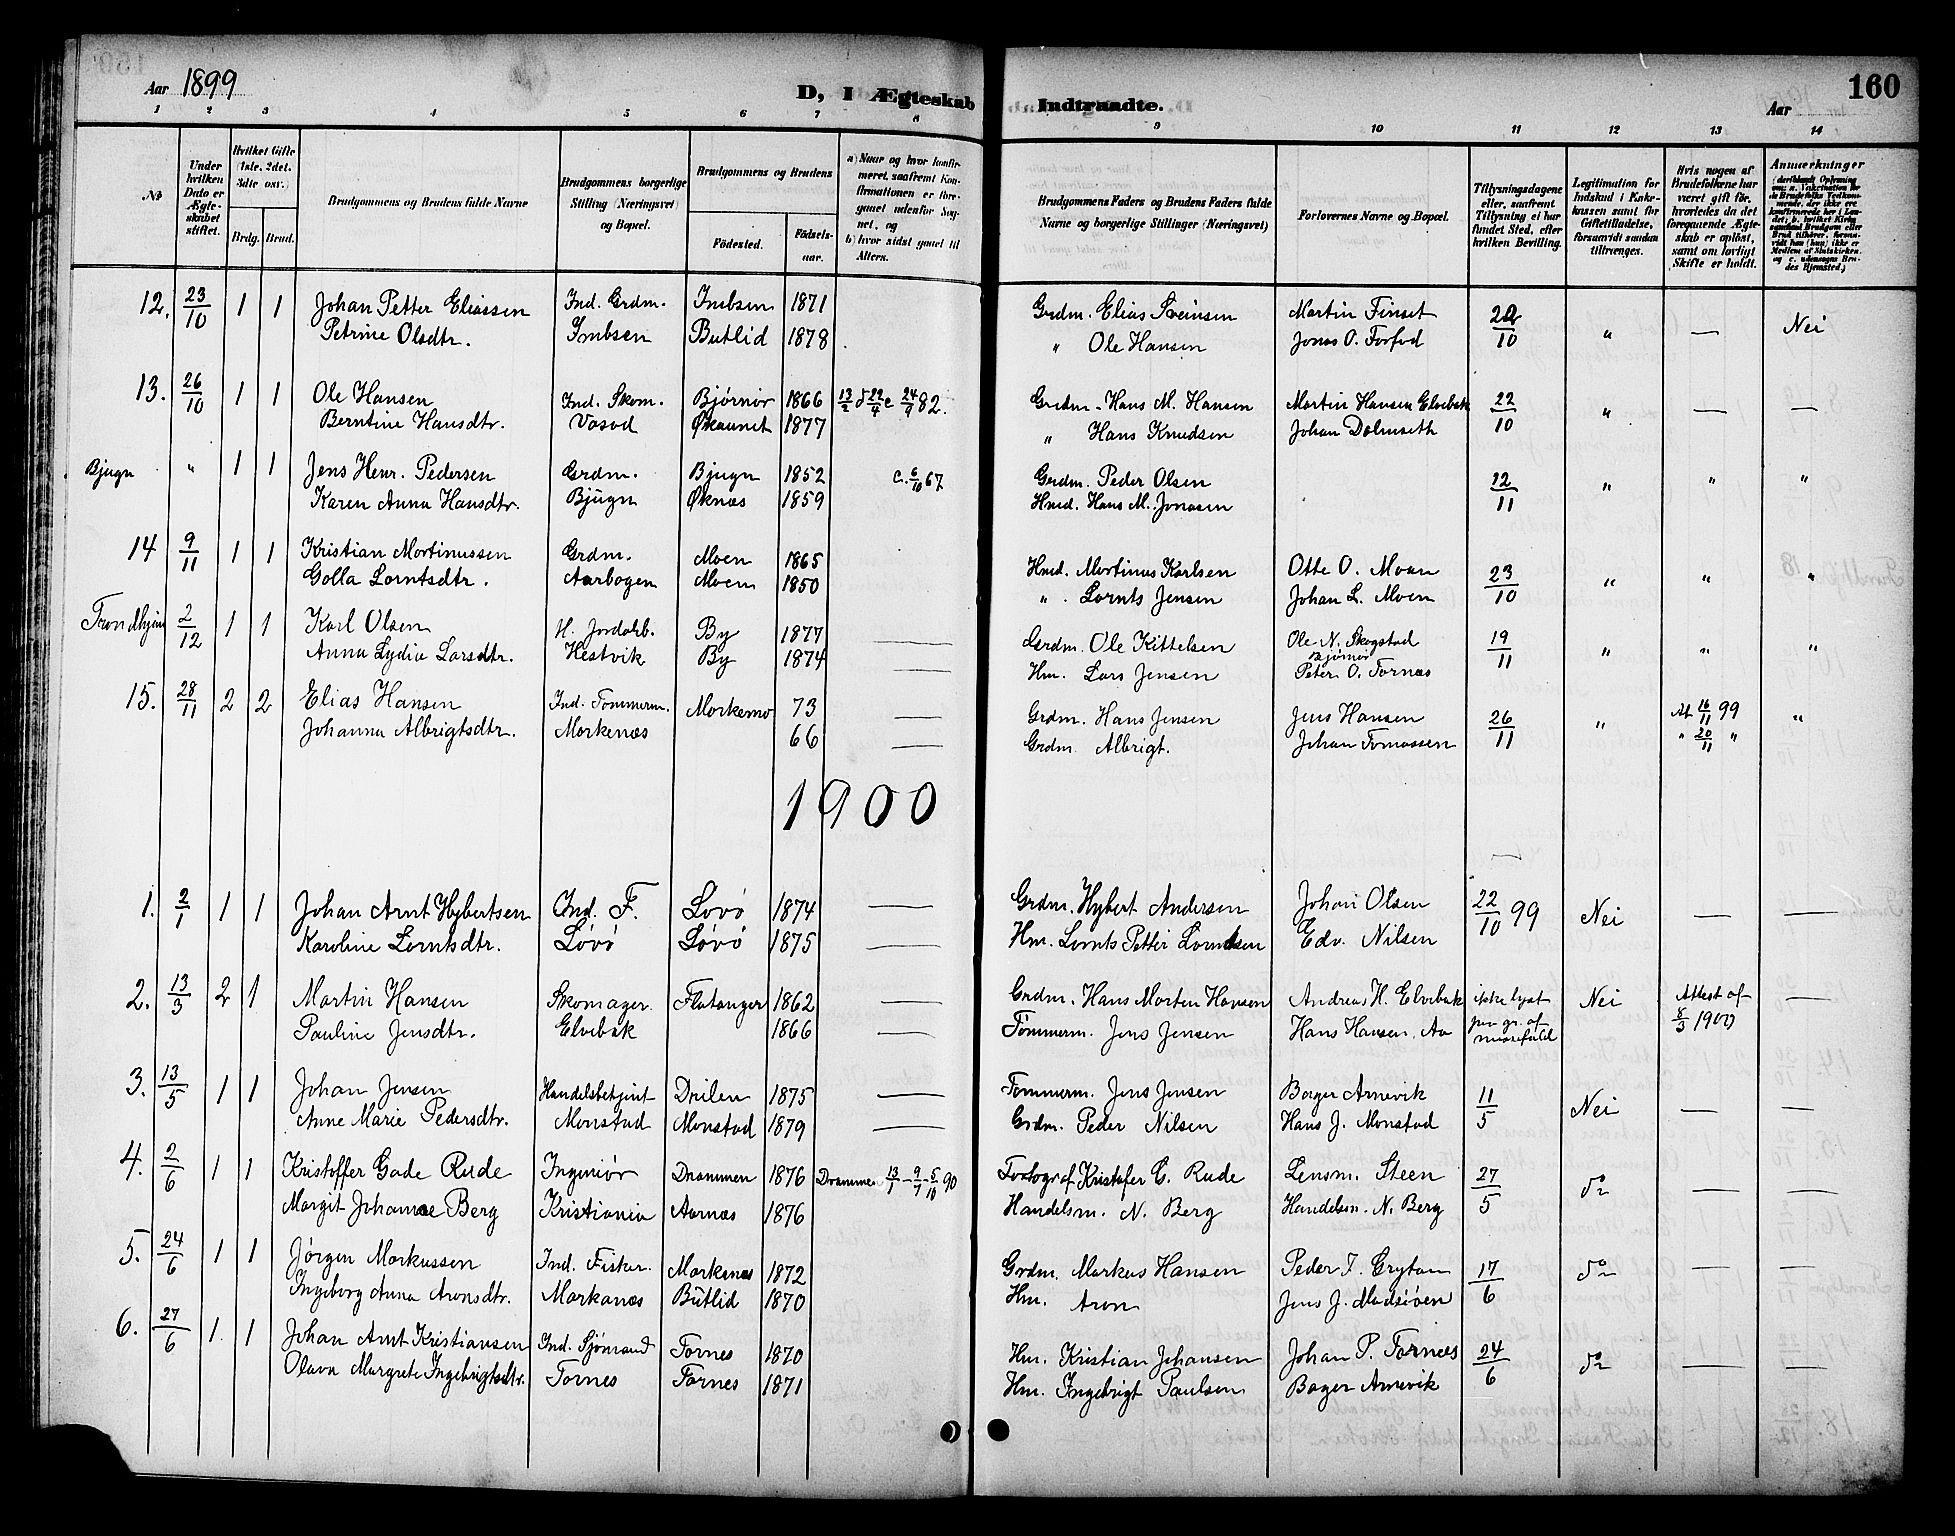 Aar 1899 D, I Ægteskab Indtraadte. Aar 160
1 2 3 4 5 6 7 8 9 10 11 12 13 14
No
Under hvilken Dato er Ægteskabet stiftet.
Hvilket Gifte (1ste, 2det, 3die osv.)
Brdg. Brud.
Brudgommens og Brudens fulde Navne
Brudgommens borgerlige Stilling (Næringsvei) og Bopæl.
Brudgommens og Brudens
Fødested. Fødselsaar.
a) Naar og hvor konfirmeret, saafremt Konfirmationen er foregaaet udenfor Sognet, og b) hvor sidst gaaet til Alters.
Brudgommens Faders og Brudens Faders fulde Navne og borgerlige Stillinger (Næringsvei)
Forlovernes Navne og Bopæl.
Tillysningsdagene eller, saafremt Tillysning ei har fundet Sted, efter hvilken Bevilling.
Legitimation for Indskud i Enkekassen samt for Giftetilladelse, forsaavidt saadan tiltrænges.
Hvis nogen af Brudefolkene har været gift før, hvorledes da det foregaaende Ægteskab er opløst, samt om lovligt Skifte er holdt.
Anmærkninger
12. 23/10 1 1 Johan Petter Eliassen Ind. Grdm. Imbsen 1871 Grdm. Elias Sveinsen Martin Finset 22/10 " — Nei
Petrine Olsdtr. Imbsen Butlid 1878 " Ole Hansen Jonas O. Forfod
13. 26/10 1 1 Ole Hansen Ind. Skom. Bjørnør 1866 13/2 d 22/4 c 24/9 82. Grdm. Hans M. Hansen Martin Hansen Elvebak 22/10 " — —
Berntine Hansdtr. Vasod Økaunet 1877 " Hans Knudsen Johan Dalmseth
Bjugn " 1 1 Jens Henr. Pedersen Grdm. Bjugn 1852 c. 6/10 67 Grdm. Peder Olsen 12/11 " " "
Karen Anna Hansdtr. Bjugn Øknæs 1859 Hmd. Hans M. Jonasen
14 9/11 1 1 Kristian Mortinussen Grdm. Moen 1865 Hmd. Mortinus Karlsen Otte O. Moan 23/10 " " "
Golla Lorntsdtr. Aarbogen Moen 1850 " Lornts Jensen Johan L. Moen
Trondhjem 2/12 1 1 Karl Olsen H. Jordarb. By 1877 — Grdm. Ole Kittelsen Ole N. Skogstad 19/11 " " "
Bjørnør
Anna Lydia Larsdtr. Hestvik By 1874 — Hm. Lars Jensen Peter O. Tornæs
15. 28/11 2 2 Elias Hansen Ind. Tømmerm. Morkemo 73 — Grdm. Hans Jensen Jens Hansen 26/11 " At 16/11 99 "
Johanna Albrigtsdtr. Morkenæs 66 — Grdm. Albrigt. Johan Tomassen " 20/11 "
1900
1. 2/1 1 1 Johan Arnt Hybertsen Ind. F. Løvø 1874 — Grdm. Hybert Andersen Johan Olsen 22/10 99 Nei — —
Karoline Lorntsdtr. Løvø Løvø 1875 — Hm. Lornts Petter Lorntsen Edv. Nilsen
2. 13/3 2 1 Martin Hansen Skomager Flatanger 1862 — Grdm. Hans Morten Hansen Andreas H. Elvebak ikke lyst Nei Attest af —
Pauline Jensdtr. Elvebak 1866 — Tømmerm. Jens Jensen Hans Hansen, Aa paa gr. af 8/3 1900
3. 13/5 1 1 Johan Jensen Handelsbetjent Drilen 1875 — Tømmerm. Jens Jensen Borger Arnevik 11/5 Nei — —
Anne Marie Pedersdtr. Monstad Monstad 1879 — Grdm. Peder Nilsen Hans J. Monstad
4. 2/6 1 1 Kristoffer Gade Rude Ingeniør Drammen 1876 Drammen 13/1 - 9/7 - 5/10 90 Fotograf Kristofer G. Rude Lensm. Steen 27/5 do — —
Margit Johanne Berg Kristiania Aarnæs 1876 Handelsm. N. Berg Handelsm. N. Berg
5. 24/6 1 1 Jørgen Markussen Ind. Fisker. Morkenæs 1872 Grdm. Markus Hansen Peder J. Grytan 17/6 do — —
Ingeborg Anna Aronsdtr. Morkenæs Butlid 1870 Hm. Aron Jens J. Madsøen
6. 27/6 1. 1 Johan Arnt Kristiansen Ind. Sjømand Tornes 1870 Hm. Kristian Johansen Johan P. Tornæs 24/6 do — —
Olava Margrete Ingebrigtsdtr. Tornes Tornes 1871 Hm. Ingebrigt Paulsen Borger Arnevik